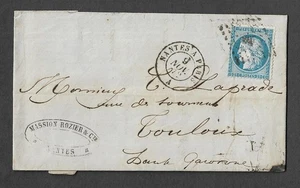 NANTES A PARIS
9
NOV.
Monsieur C. Laprade
rue de
Toulouse
Haute Garonne
MASSION ROZIER & CIE
NANTES